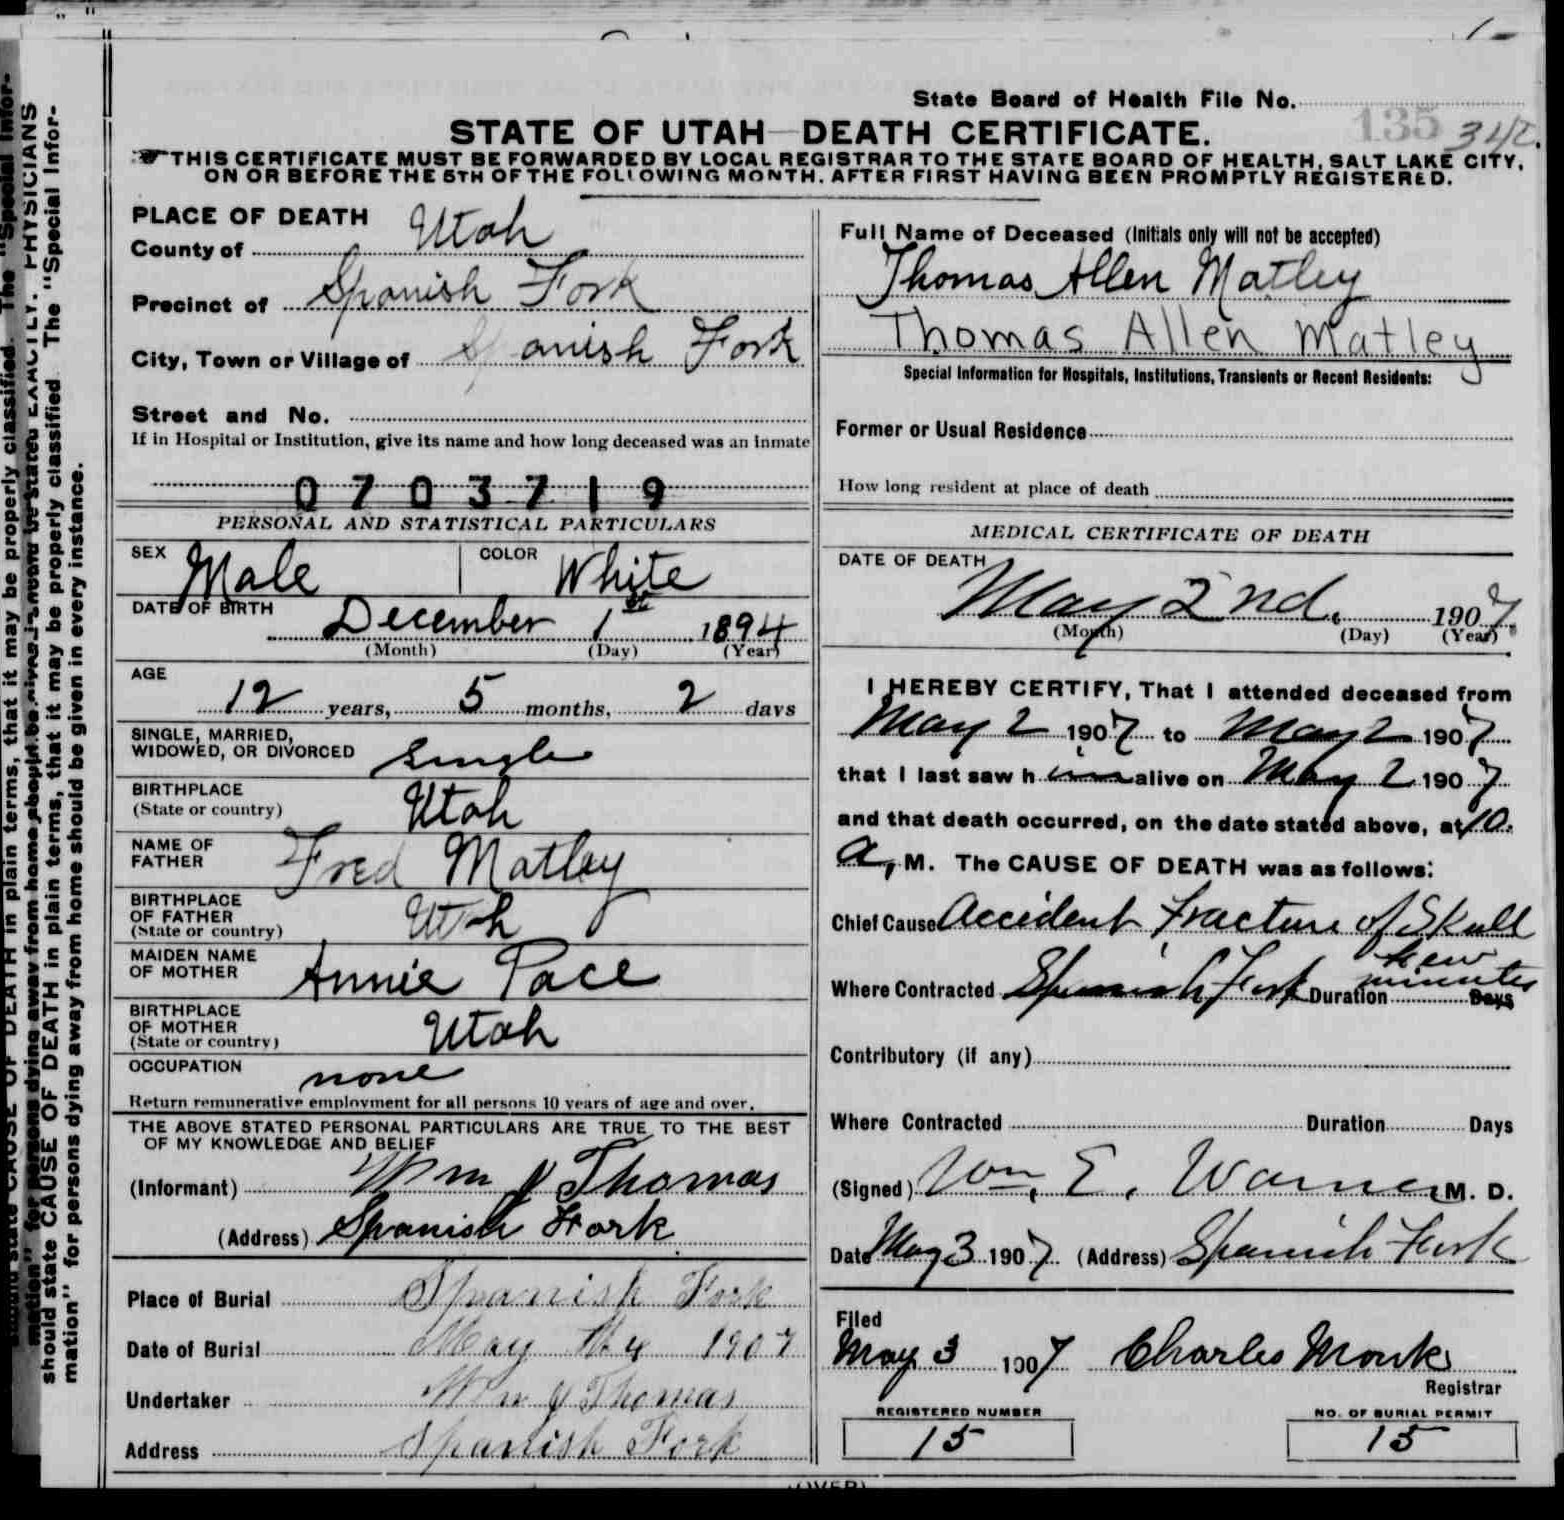 State Board of Health File No.
135 342.
STATE OF UTAH—DEATH CERTIFICATE.
THIS CERTIFICATE MUST BE FORWARDED BY LOCAL REGISTRAR TO THE STATE BOARD OF HEALTH, SALT LAKE CITY,
ON OR BEFORE THE 5TH OF THE FOLLOWING MONTH, AFTER FIRST HAVING BEEN PROMPTLY REGISTERED.
PLACE OF DEATH
County of Utah
Precinct of Spanish Fork
City, Town or Village of Spanish Fork
Street and No.
If in Hospital or Institution, give its name and how long deceased was an inmate
0703719
PERSONAL AND STATISTICAL PARTICULARS
SEX Male COLOR White
DATE OF BIRTH
December 1st 1894
(Month) (Day) (Year)
AGE
12 years, 5 months, 2 days
SINGLE, MARRIED,
WIDOWED, OR DIVORCED Single
BIRTHPLACE
(State or country) Utah
NAME OF
FATHER Fred Matley
BIRTHPLACE
OF FATHER
(State or country) Utah
MAIDEN NAME
OF MOTHER Annie Pace
BIRTHPLACE
OF MOTHER
(State or country) Utah
OCCUPATION none
Return remunerative employment for all persons 10 years of age and over.
THE ABOVE STATED PERSONAL PARTICULARS ARE TRUE TO THE BEST
OF MY KNOWLEDGE AND BELIEF
(Informant) Wm J Thomas
(Address) Spanish Fork
Place of Burial Spanish Fork
Date of Burial May 4 1907
Undertaker Wm J Thomas
Address Spanish Fork
Full Name of Deceased (Initials only will not be accepted)
Thomas Allen Matley
Thomas Allen Matley
Special Information for Hospitals, Institutions, Transients or Recent Residents:
Former or Usual Residence
How long resident at place of death
MEDICAL CERTIFICATE OF DEATH
DATE OF DEATH
May 2nd. 1907.
(Month) (Day) (Year)
I HEREBY CERTIFY, That I attended deceased from
May 2 1907 to May 2 1907
that I last saw h im alive on May 2 1907
and that death occurred, on the date stated above, at 10.
a, M. The CAUSE OF DEATH was as follows:
Chief Cause Accident Fracture of Skull
Where Contracted Spanish Fork Duration few minutes Days
Contributory (if any)
Where Contracted Duration Days
(Signed) Wm. E. Warner M. D.
Date May 3 1907 (Address) Spanish Fork
Filed
May 3 1907 Charles Monk
Registrar
REGISTERED NUMBER
15
NO. OF BURIAL PERMIT
15
(OVER)
should state CAUSE OF DEATH in plain terms, that it may be properly classified The "Special Infor-
mation" for persons dying away from home should be given in every instance.